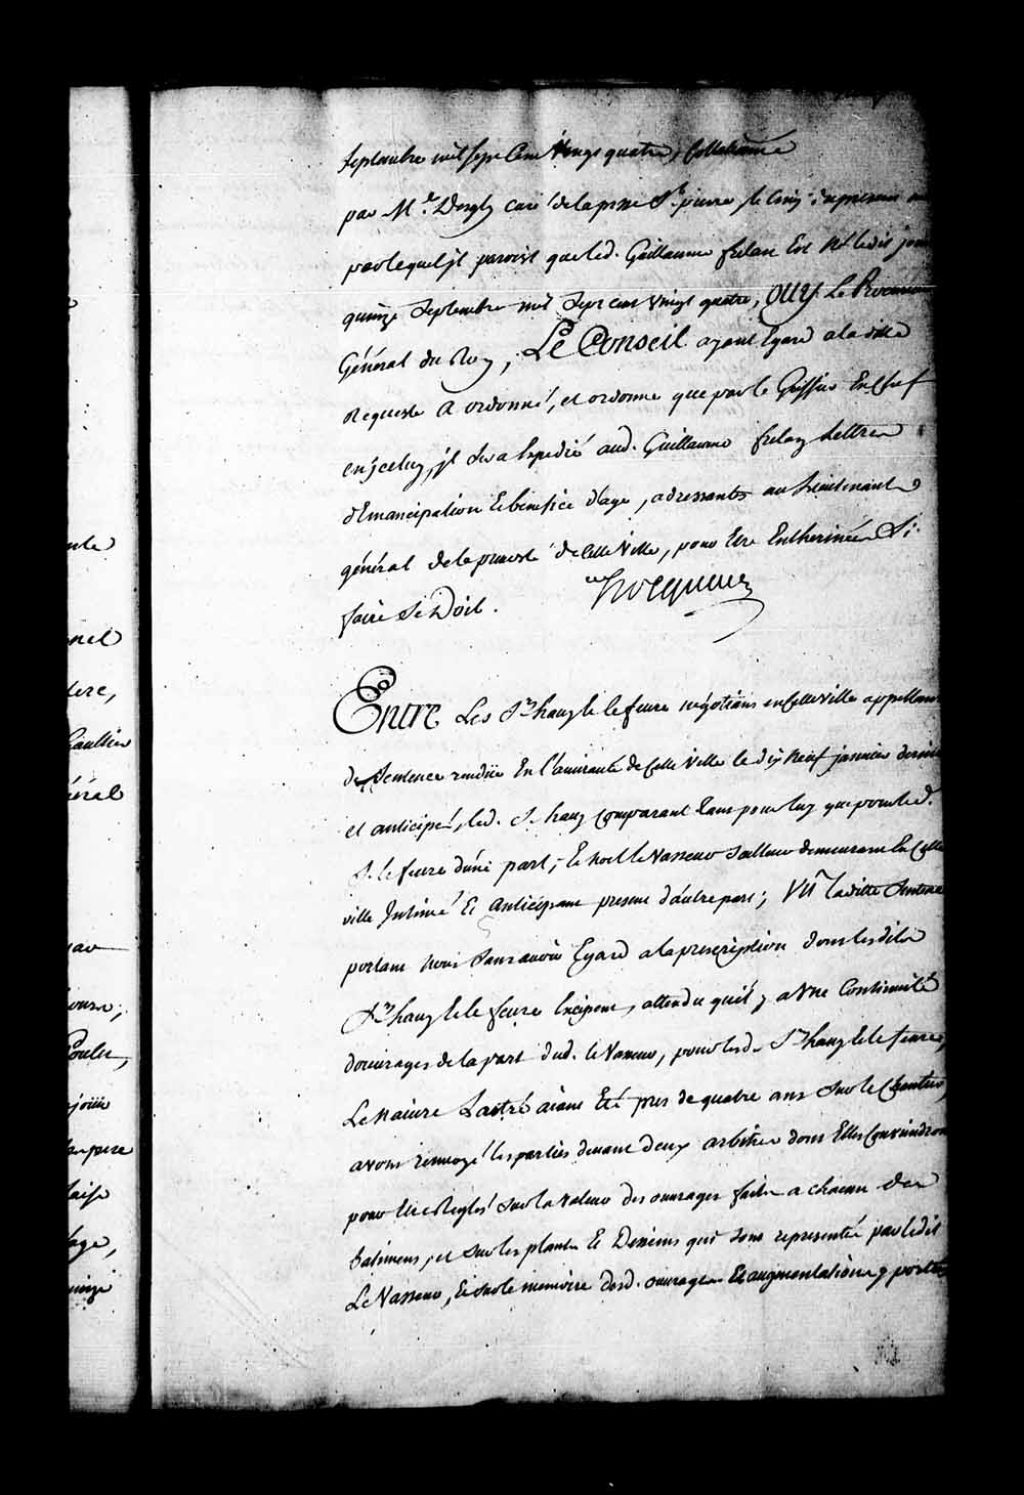 Septembre mil sept Cent Vingt quatre, Collationné
par M.r curé de la S.t pierre, le Cinq du present
par lequel jl paroist que led. Guillaume frelan Est Né ledit jour
quinze Septembre mil Sept cent vingt quatre, OUY Le Procureur
Général du Roy, Le Conseil ayant Egard a ladite
Requeste A ordonné, et ordonne que par le Greffier En Chef
en jceluy, jl Sera Expedié aud. Guillaume frelan Lettres
d'Emancipation Et benefice d'age, adressantes au Lieutenant
général de la prevosté de Cette Ville, pour Etre Entherinées Si
faire Se Doit.
Hocquart
Entre Les Srs havy et le feuvre négotians en Cette Ville appellans
de Sentence rendüe En l'amirauté de Cette Ville le dix Neuf janvier dernier
et anticipés, led. Sr havy Comparant Tant pour luy que pour led.
Sr. le feuvre d'une part; Et Noel le Vasseur Sculteur demeurant En Cette
ville Intimé Et Anticipant present d'autre part; VU ladite Sentence
portant Nous Sans avoir Egard a la prescription dont lesdits
Srs havy et le feuvre Excipent, attendu qu'il y a Une Continuité
d'ouvrages de la part dud. le Vasseur, pour lesd. Srs havy et le feuvre,
Le Navire Lastré aiant Eté pres de quatre ans Sur le Chantier,
avons renvoyé les parties devant deux arbitres dont Elles Conviendront
pour Etre Reglés Sur la Valeur des ouvrages faits a chacun des
Batimens, et Sur les plans Et Desseins qui Sont representés par ledit
Le Vasseur, Et Sur le memoire desd. ouvrages Et augmentations y portées